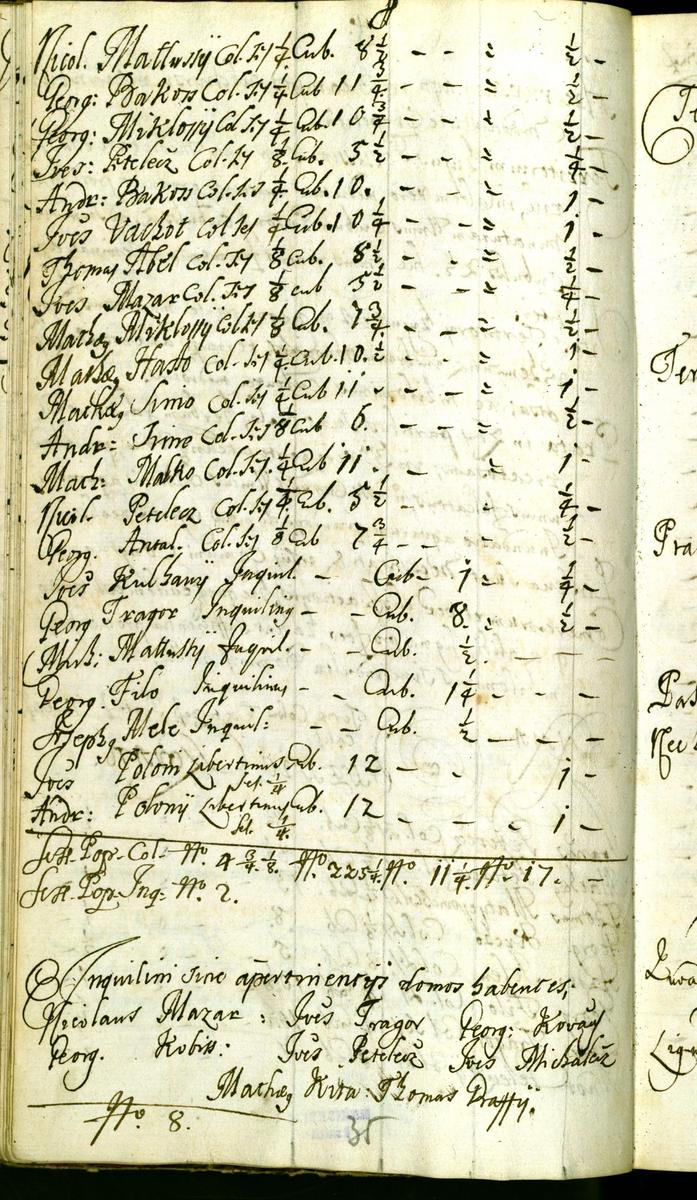 Nicol. Mattusÿ Col. Ses ¼ Cub. 8½ – – „ ½ –
Georg: Bakoss Col. Ses ¼ Cub 11¾ – – „ ½ –
Georg: Miklossÿ Col Ses ¼ Cub. 10¾ – – „ ½ –
Jves: Petelecz Col. Ses ⅛ Cub. 5½ – – „ ¼ –
Andr: Bakoss Col. Ses ¼ Cub. 10. – – „ 1 –
Jvës Vachot Col Ses ¼ Cub. 10¼ – – „ 1 –
Thomas Abel Col. Ses ⅛ Cub. 8½ – – „ ½ –
Jves Mazar Col. Ses ⅛ cub 5½ – – „ ¼ –
Mathæ Miklossÿ Col Ses ⅛ Cub. 7¾ – – „ ½ –
Mathæ Hasto Col. Ses ¼ Cub. 10.½ – – „ 1 –
Mathæ Simo Col. Ses ¼ Cub 11 – – „ 1 –
Andr: Simo Col. Ses ⅛ Cub 6. – – „ ½ –
Math: Matko Col. Ses. ¼ Cub 11. – „ 1 –
Nicol. Petelecz Col. Ses ¼ Cub. 5½ – – „ ¼ –
Georg. Antal. Col. Ses ⅛ Cub 7¾ – – „ ½ –
Jvës Kulhanÿ Jnquil. – Cub – 1 „ ¼ –
Georg Tragor Inquilinq – – Cub. 8. „ ½ –
Mich: Mattusÿ Jnquil. – – Cub. ½ . – – –
Georg. Filo Inquilinus – – Cub. 1¼ – – –
Joseph Mele Inquil: – – Cub. ½ – – –
Jvës Poloni Libertinus Cub. 12 – – 1 –
Ses. ¼
Andr: Polonÿ Libertinus Cub. 12 – – – 1 –
Ses. ¼.
Sess. Pop. Col. Nº. 4 ¾ ⅛. Nº. 225¼ Nº. 11¼ Nº. 17. –
Sess. Pop. Inq: Nº 2.
Inquilini sine apertinentijs domos habentes;
Nicolaus Mazar: Jvës Tragor Georg: Kovacs
Georg. Kobiss: Jvës Petelecz Jves Michalecz
Mathæ Kita: Thomas
Nº 8.
35